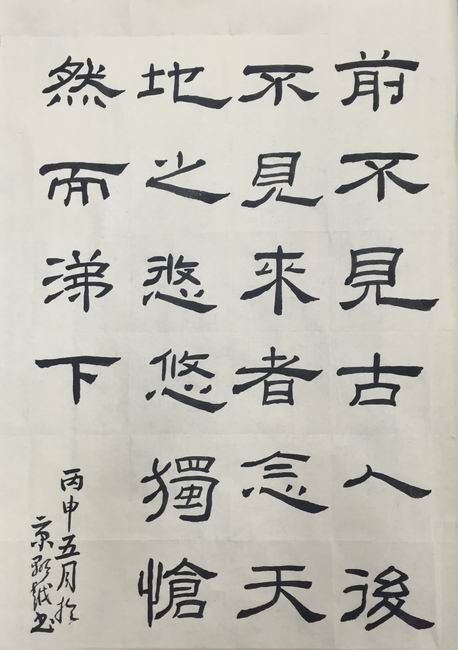 前不見古人後
不見來者念天
地之悠悠獨愴
然而涕下
丙申五月於
京越书